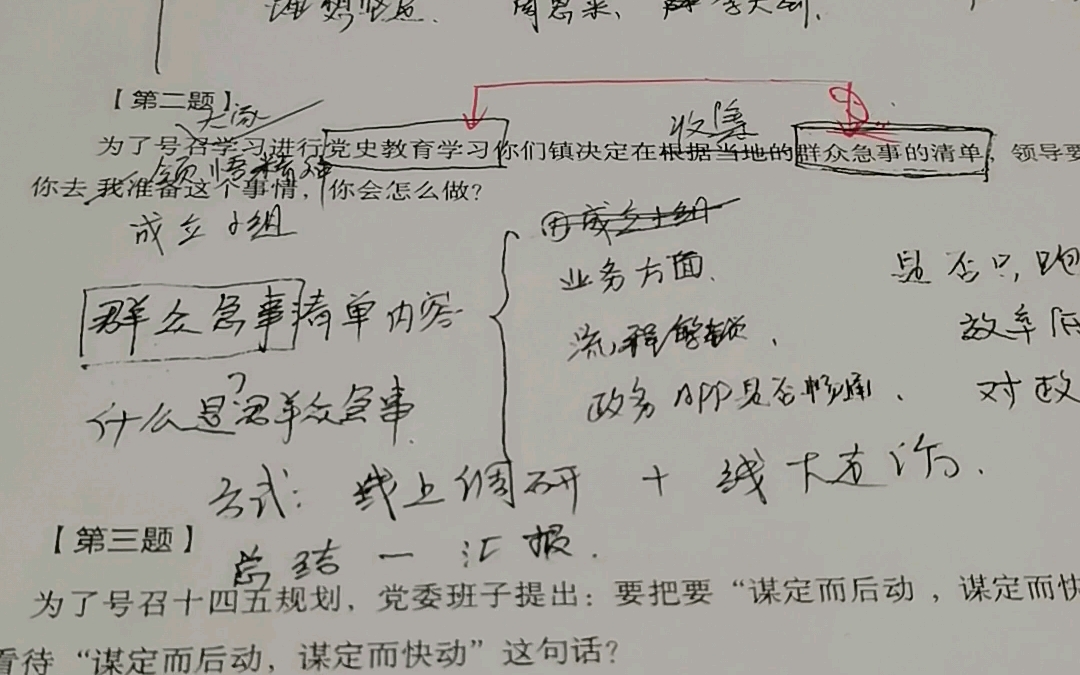 理想坚定. 周恩来、 李大钊.
【第二题】
为了号召学习进行党史教育学习你们镇决定在根据当地的群众急事的清单，领导要
收集
领悟精神
你去 我准备这个事情，你会怎么做？
成立小组
成立小组
业务方面. 是否只跑
群众急事清单内容
流程繁琐、 效率
政务APP是否畅通、 对政
什么是群众急事
方式：线上调研 + 线下走访.
【第三题】
总结 一 汇报.
为了号召十四五规划，党委班子提出：要把要“谋定而后动，谋定而快
看待“谋定而后动，谋定而快动”这句话？